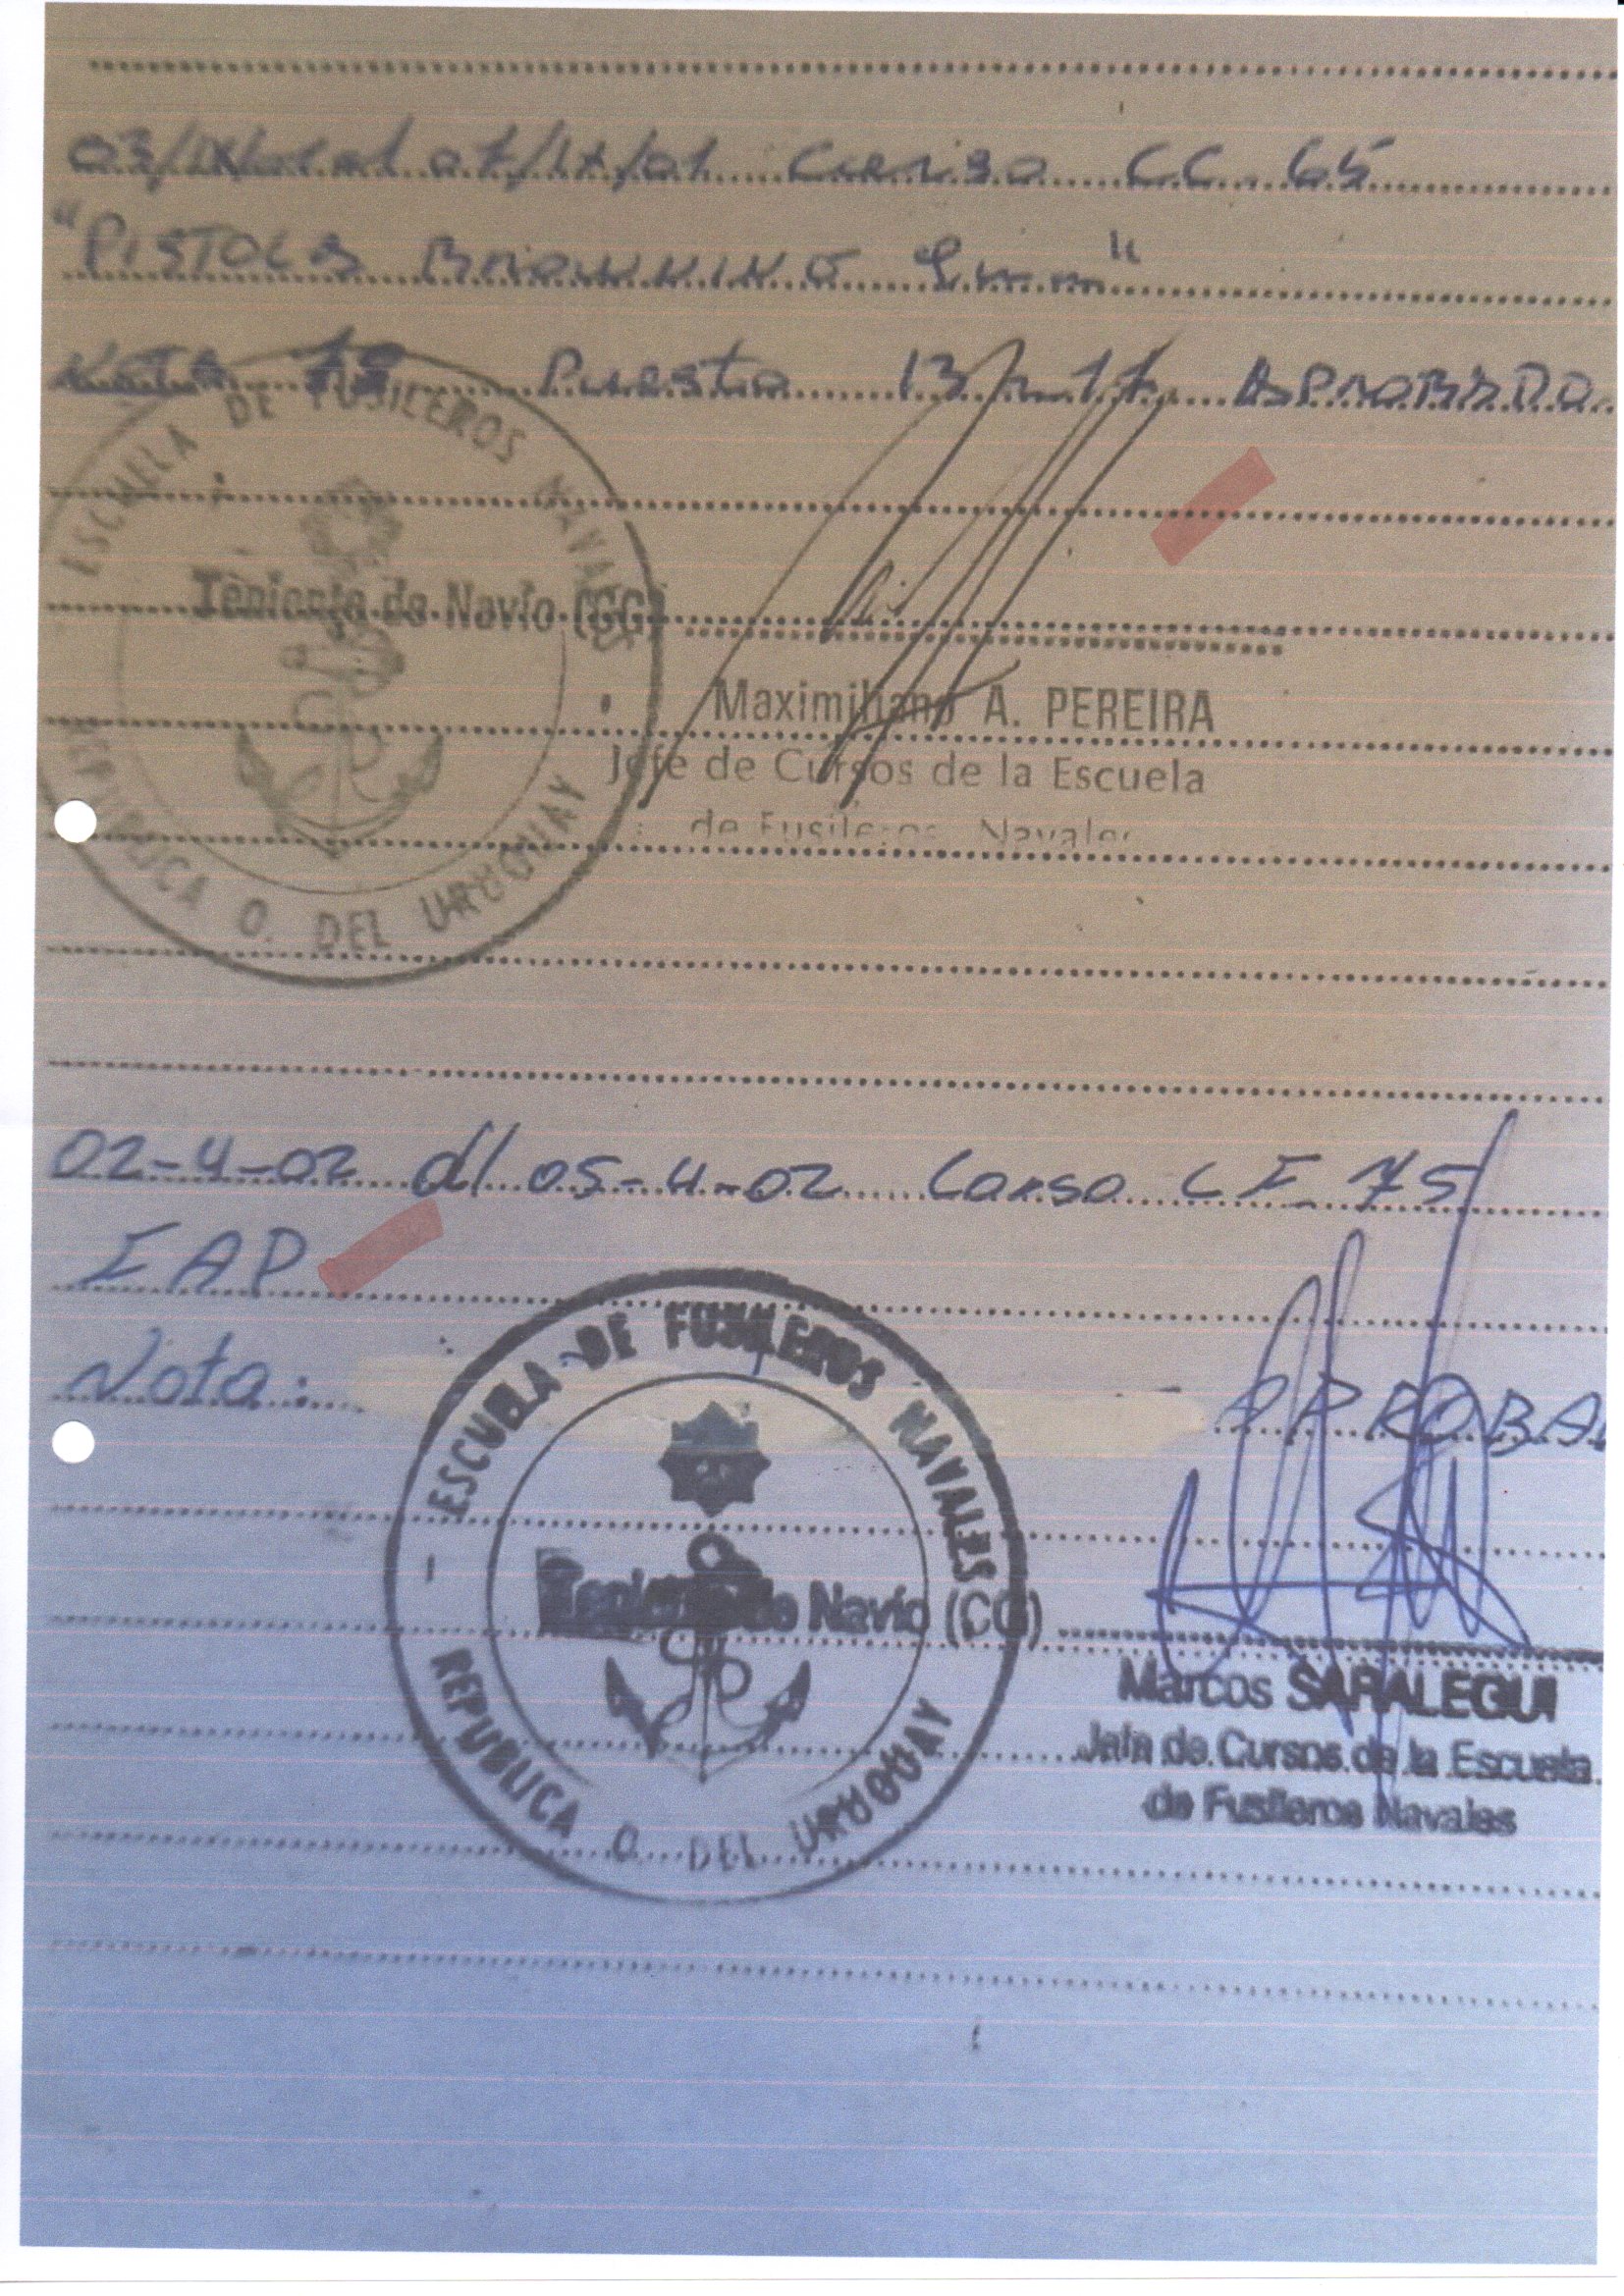 03/IX/01 al 07/IX/01 Curso CC 65
"PISTOLA BROWNING 9mm"
Nota Puesto 13/ 17 APROBADO
ESCUELA DE FUSILEROS NAVALES
REPUBLICA O. DEL URUGUAY
Teniente de Navío (CG)
Maximiliano A. PEREIRA
Jefe de Cursos de la Escuela
de Fusileros Navales
02-4-02 al 05-4-02 Curso CE 75
IAP
Nota: APROBA
ESCUELA DE FUSILEROS NAVALES
REPUBLICA O. DEL URUGUAY
Teniente de Navío (CG)
Marcos SARALEGUI
Jefe de Cursos de la Escuela
de Fusileros Navales